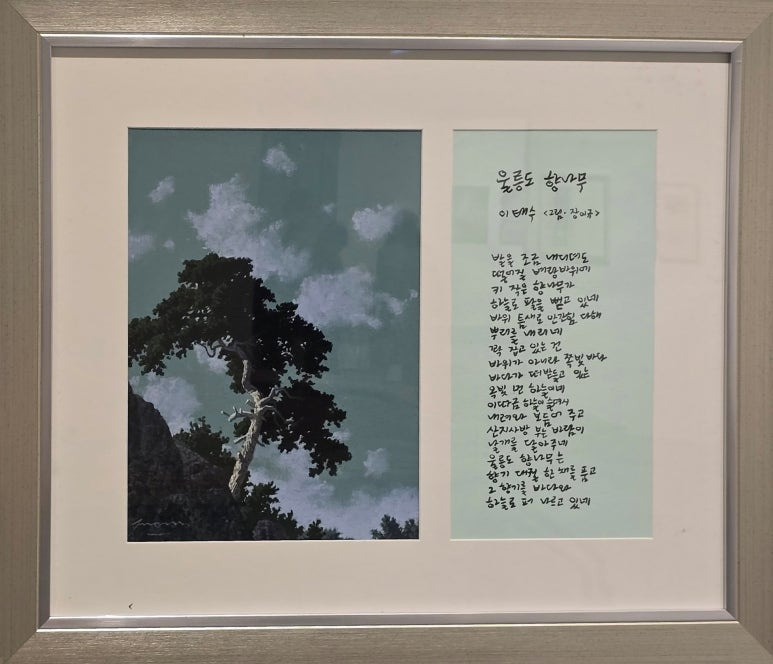 울릉도 향나무
이태수 <그림·장이규>
발을 조금 내디뎌도
떨어질 벼랑바위에
키 작은 향나무가
하늘로 팔을 뻗고 있네
바위 틈새로 안간힘 다해
뿌리를 내리네
꽉 잡고 있는 건
바위가 아니라 쪽빛 바다
바다가 떠받들고 있는
옥빛 빈 하늘이네
이따금 하늘이 슬며시
내려와 보듬어 주고
산지사방 부는 바람이
날개를 달아주네
울릉도 향나무는
향기 대궐 한 채를 품고
그 향기를 바다와
하늘로 퍼 나르고 있네